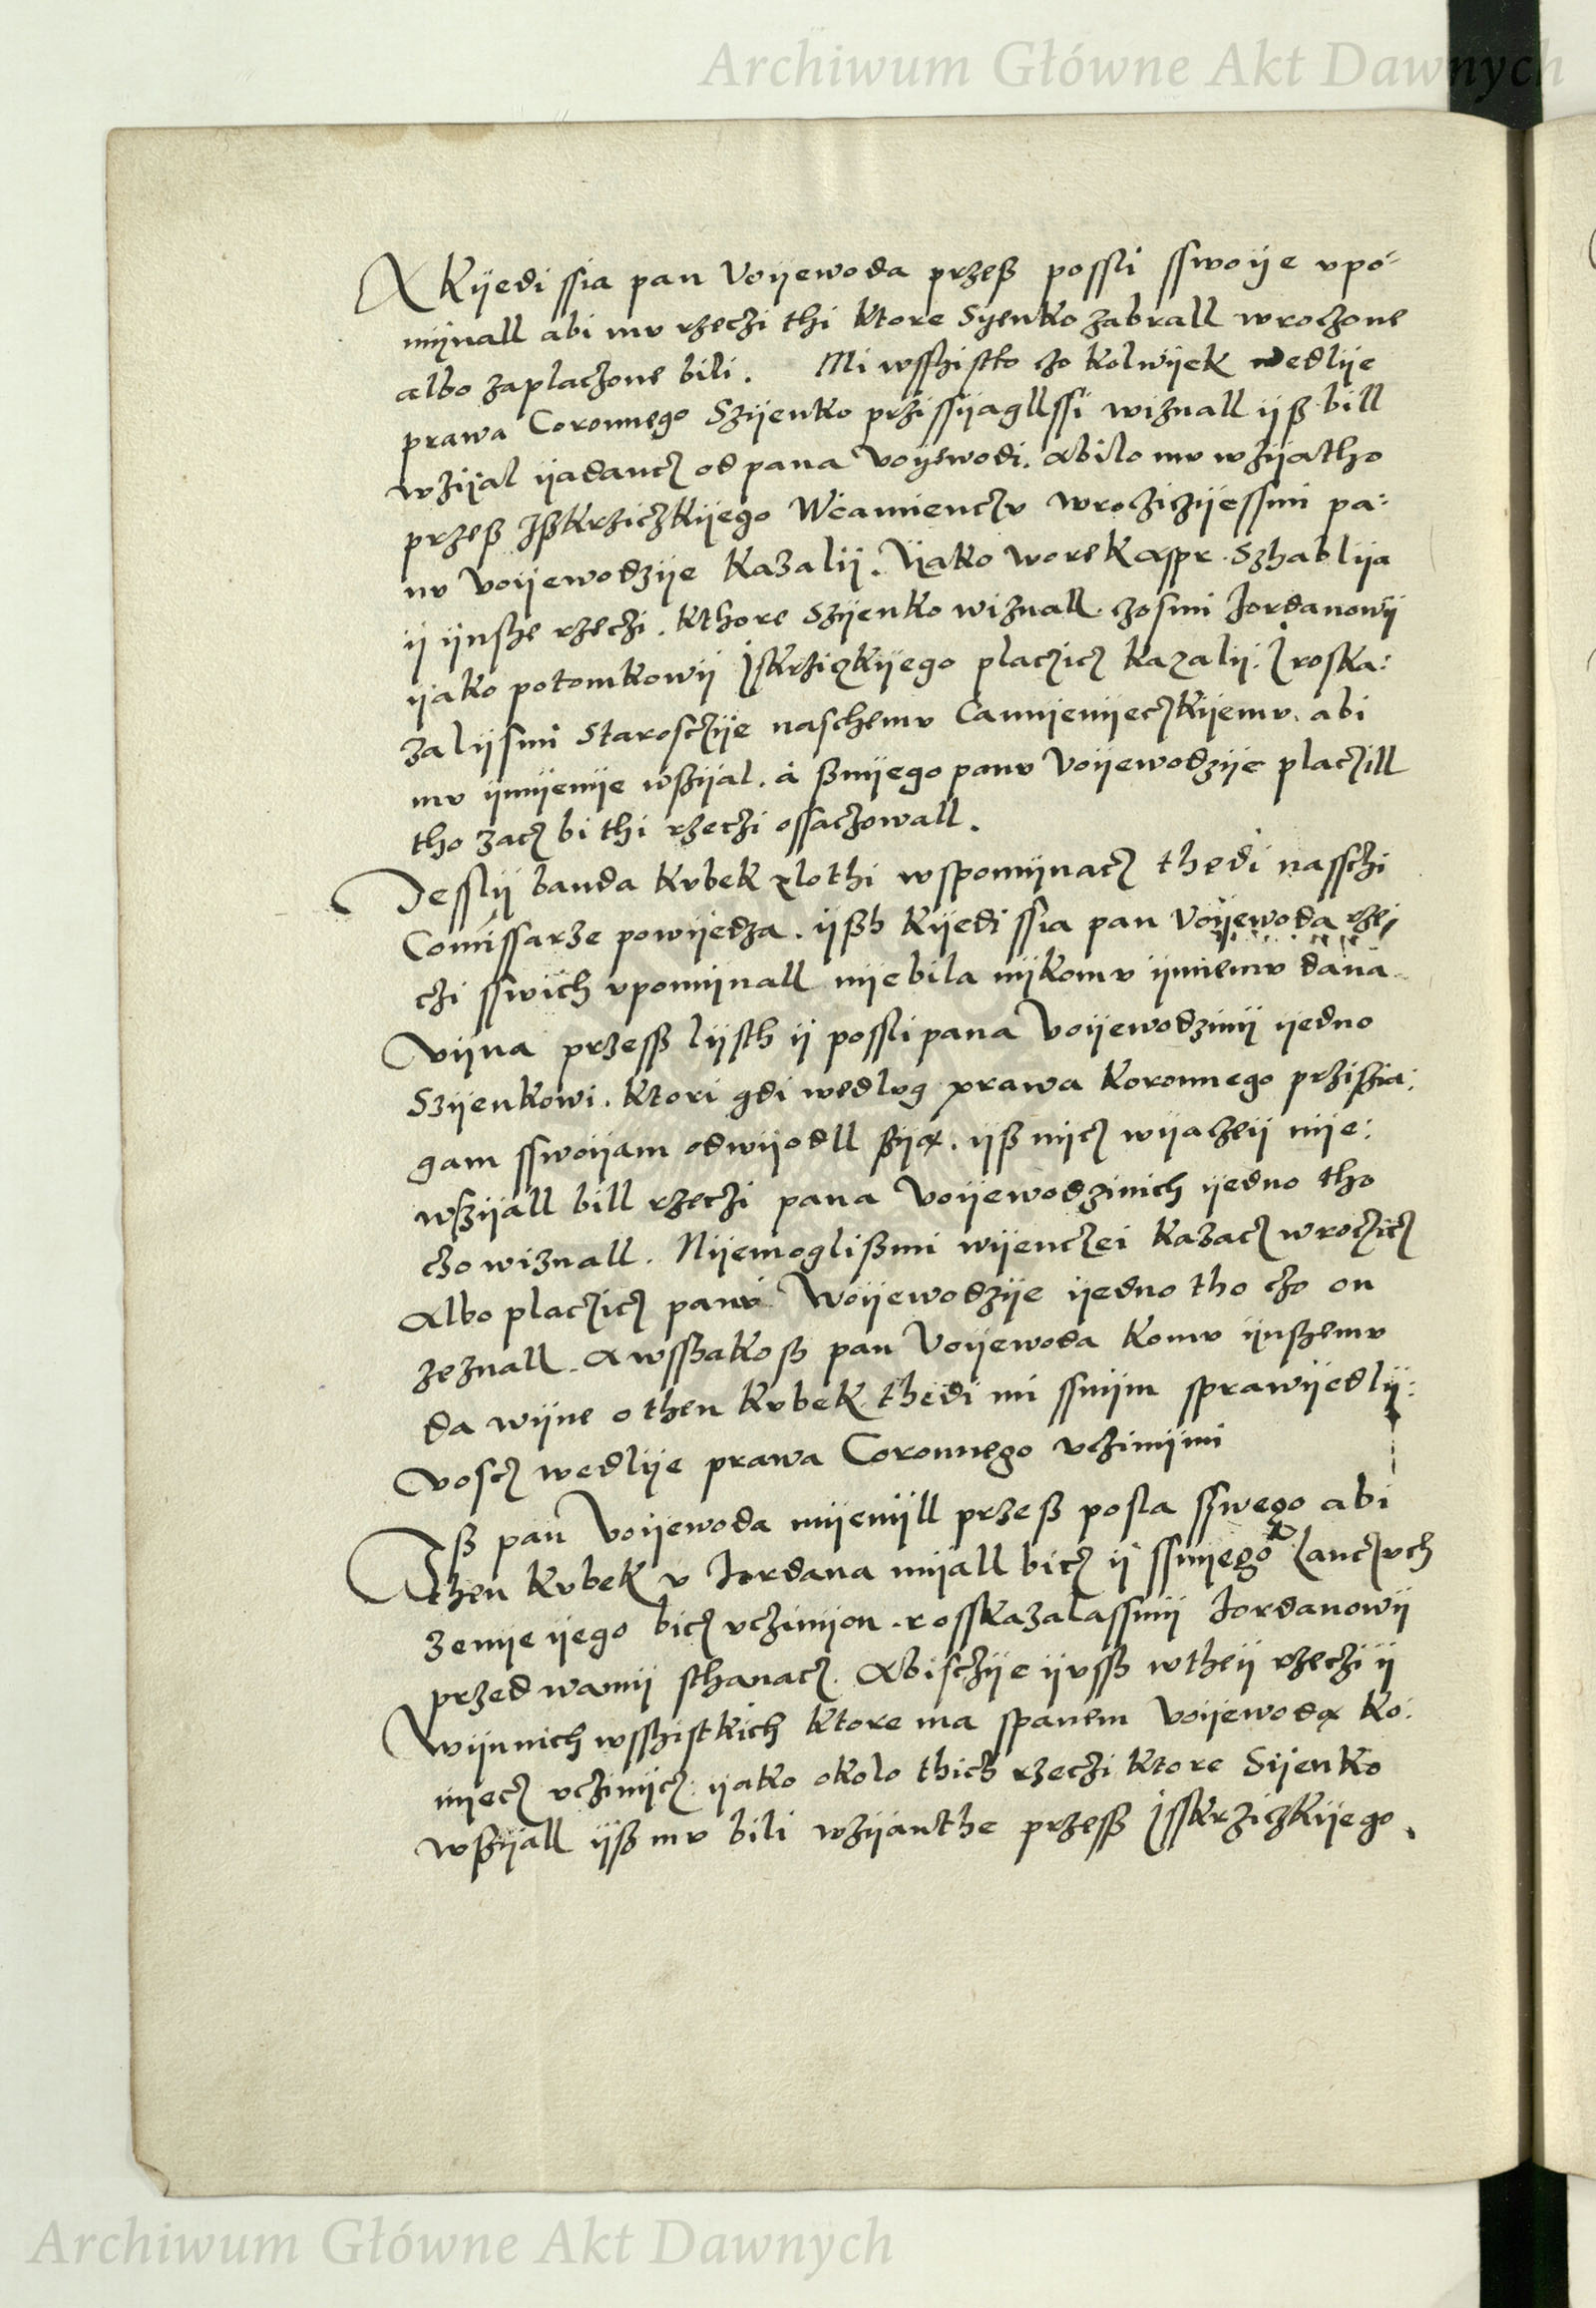 Archiwum Główne Akt Dawnych
A Kijedi ssia pan Voijewoda przeß possli sswoije vpo-
mijnall abi mv rzeczi thi ktore Syenko zabrall wroczone
albo zaplaczone bili. Mi wsshistko czo kolwijek wedlije
prawa Coronnego Szijenko przissijagllssi wiznall ijß bill
wzijal ijadancz od pana voijewodi. Abilo mv wzijatho
przeß Jßkrziczkijego Wcamienczv wrocziczijessmi pa:
nv voijewodzije kazalij. Ijako worek aspr. Szhablija
ij ijnshe rzeczi. kthore Szijenko wiznall. czosmi Jordanowij
ijako potomkowij Jskrziczkijego placzicz kazalij. J roska:
zalijsmi Starosczije naschemv Camijenijeczkijemv. abi
mv ijmijenije wßijal. a ßnijego panv Voijewodzije placzill
tho zacz bi thi rzeczi ossaczowall.
Jesslij banda kvbek zlothi wspomijnacz thedi nasschi
Comissarze powijedza. ijßh kijedi ssia pan Voijewoda rze/
czi sswich vpomijnall nijebila nijkomv ijnnemv dana
vijna przessß lijsth ij possli pana Voijewodzinij ijedno
Szijenkowi. ktori gdi wedlvg prawa koronnego przißia:
gam sswoijam odwijodll ßija. ijß nijcz wijaczeij nije:
wßijall bill rzeczi pana voijewodzinich ijedno tho
czo wiznall. Nijemoglißmi wijenczei kazacz wroczicz
Albo placzicz panv Woijewodzije ijedno tho czo on
zeznall. A wssßakoß pan Voijewoda komv ijnszemv
da wijne o then kvbek thedi mi ssnijm sprawijedlij:
voscz wedlije prawa Coronnego vczinijmi
Iß pan Voijewoda mijenijll przeß posla sswego abi
then kvbek v Jordana mijall bicz ij ssnijego lanczvch
zenije ijego bicz vczinijon. rosskazalassmij Jordanowij
przed wamij sthanacz. Abisczije ijvssß wtheij rzeczi ij
Wijnnich wsshistkich ktore ma spanem voijewoda ko:
nijecz vczinijcz. ijako okolo thich rzeczi ktore Sijenko
wßijall ijß mv bili wzijanthe przeß Jsskrziczkijego.
Archiwum Główne Akt Dawnych